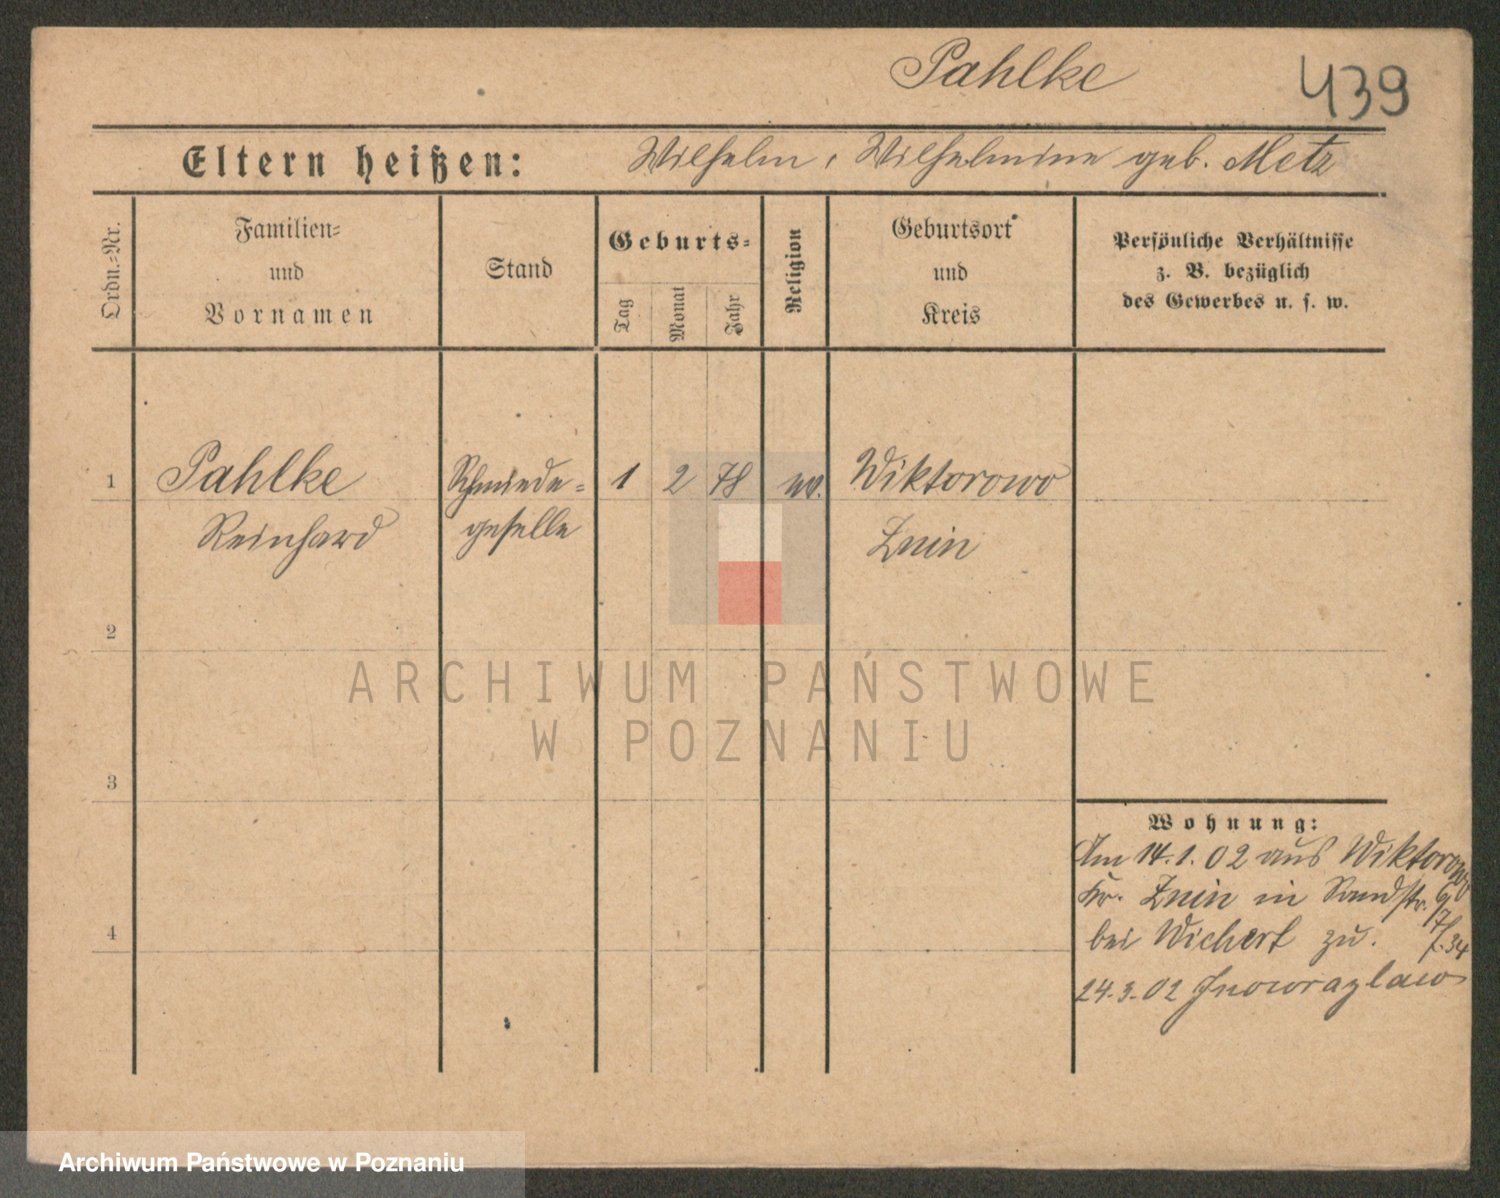 Pahlke
439
Eltern heißen: Wilhelm, Wilhelmine geb. Metz
Ordn.-Nr.
Familien-
und
Vornamen
Stand
Geburts-
Tag
Monat
Jahr
Religion
Geburtsort
und
Kreis
Persönliche Verhältnisse
z. B. bezüglich
des Gewerbes u. s. w.
1 Pahlke Schmiede- 1 2 78 ev. Wiktorowo
Reinhard geselle Znin
2
ARCHIWUM PAŃSTWOWE
W POZNANIU
3
Wohnung:
Am 14.1.02 aus Wiktorowo
Kr. Znin in Sandstr.
4
bei Wichert zu.
24.3.02 Inowrazlaw
Archiwum Państwowe w Poznaniu